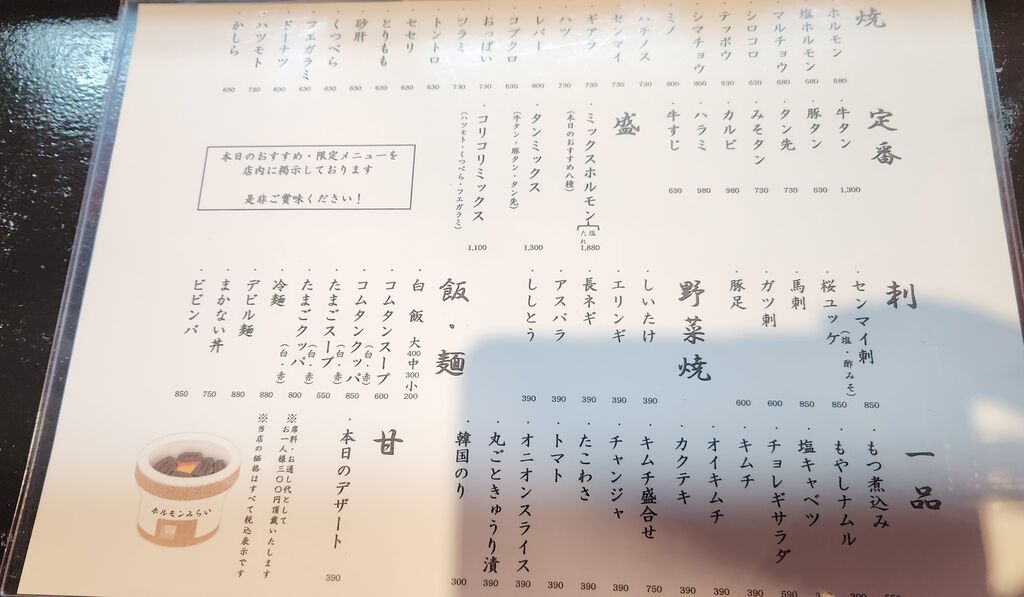 焼
・ホルモン 680
・塩ホルモン 680
・マルチョウ 680
・シロコロ 630
・テッポウ 630
・シマチョウ 800
・ミノ 800
・ハチノス 730
・センマイ 630
・ギアラ 730
・ハツ 730
・レバー 800
・コブクロ 630
・おっぱい 730
・ツラミ 730
・トントロ 630
・セセリ 630
・とりもも 630
・砂肝 630
・くつべら 630
・フエガラミ 630
・ドーナツ 630
・ハツモト 730
・かしら 630
定番
・牛タン 1,300
・豚タン 630
・タン先 730
・みそタン 730
・カルビ 980
・ハラミ 980
・牛すじ 630
盛
・ミックスホルモン(塩・たれ) 1,880
(本日のおすすめ八種)
・タンミックス 1,300
(牛タン・豚タン・タン先)
・コリコリミックス 1,100
(ハツモト・くつべら・フエガラミ)
本日のおすすめ・限定メニューを
店内に掲示しております
是非ご賞味ください!
刺
・センマイ刺(塩・酢みそ) 850
・桜ユッケ 850
・馬刺 850
・ガツ刺 600
・豚足 600
野菜焼
・しいたけ 390
・エリンギ 390
・長ネギ 390
・アスパラ 390
・ししとう 390
飯・麺
・白 飯 大400中300小200
・コムタンスープ 600
・コムタンクッパ(白・赤) 850
・たまごスープ(白・赤) 550
・たまごクッパ(白・赤) 800
・冷麺 880
・デビル麺 880
・まかない丼 750
・ビビンバ 850
一品
・もつ煮込み
・もやしナムル
・塩キャベツ
・チョレギサラダ 590
・キムチ 390
・オイキムチ 390
・カクテキ 390
・キムチ盛合せ 750
・チャンジャ 390
・たこわさ 390
・トマト 390
・オニオンスライス 390
・丸ごときゅうり漬 390
・韓国のり 300
甘
・本日のデザート 390
※席料・お通し代として
お一人様三〇〇円頂戴いたします
※当店の価格はすべて税込表示です
ホルモンみらい